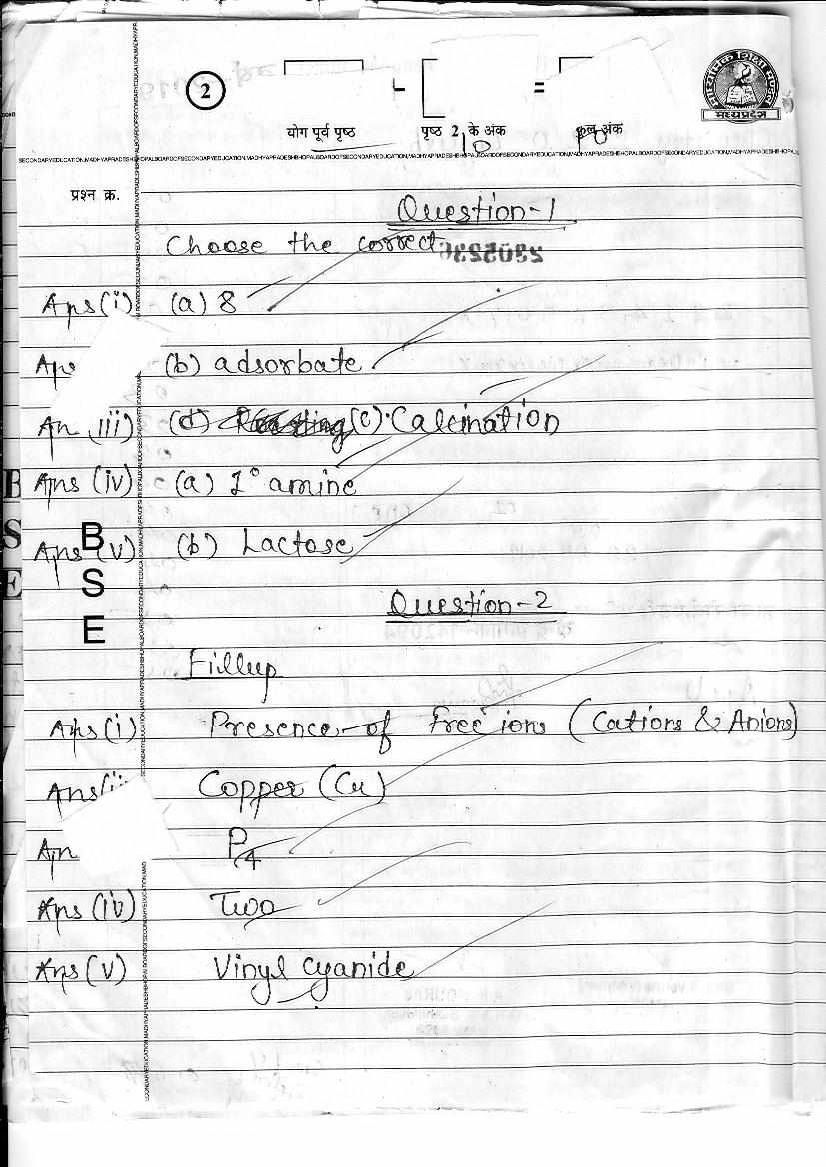 2
योग पूर्व पृष्ठ
पृष्ठ 2 के अंक
कुल अंक
10
माध्यमिक शिक्षा मण्डल
मध्यप्रदेश
प्रश्न क्र.
Question-1
Choose the correct
Ans(i) (a) 8
(b) adsorbate
iii) (d) (c) Calcination
Ans (iv) (a) 1° amine
Ans (v) (b) Lactose
B
S
E
Question-2
Fillup
Ans(i) Presence of free ions (Cations & Anions)
Ans(ii Copper (Cu)
An P4
Ans (iv) Two
Ans (v) Vinyl cyanide